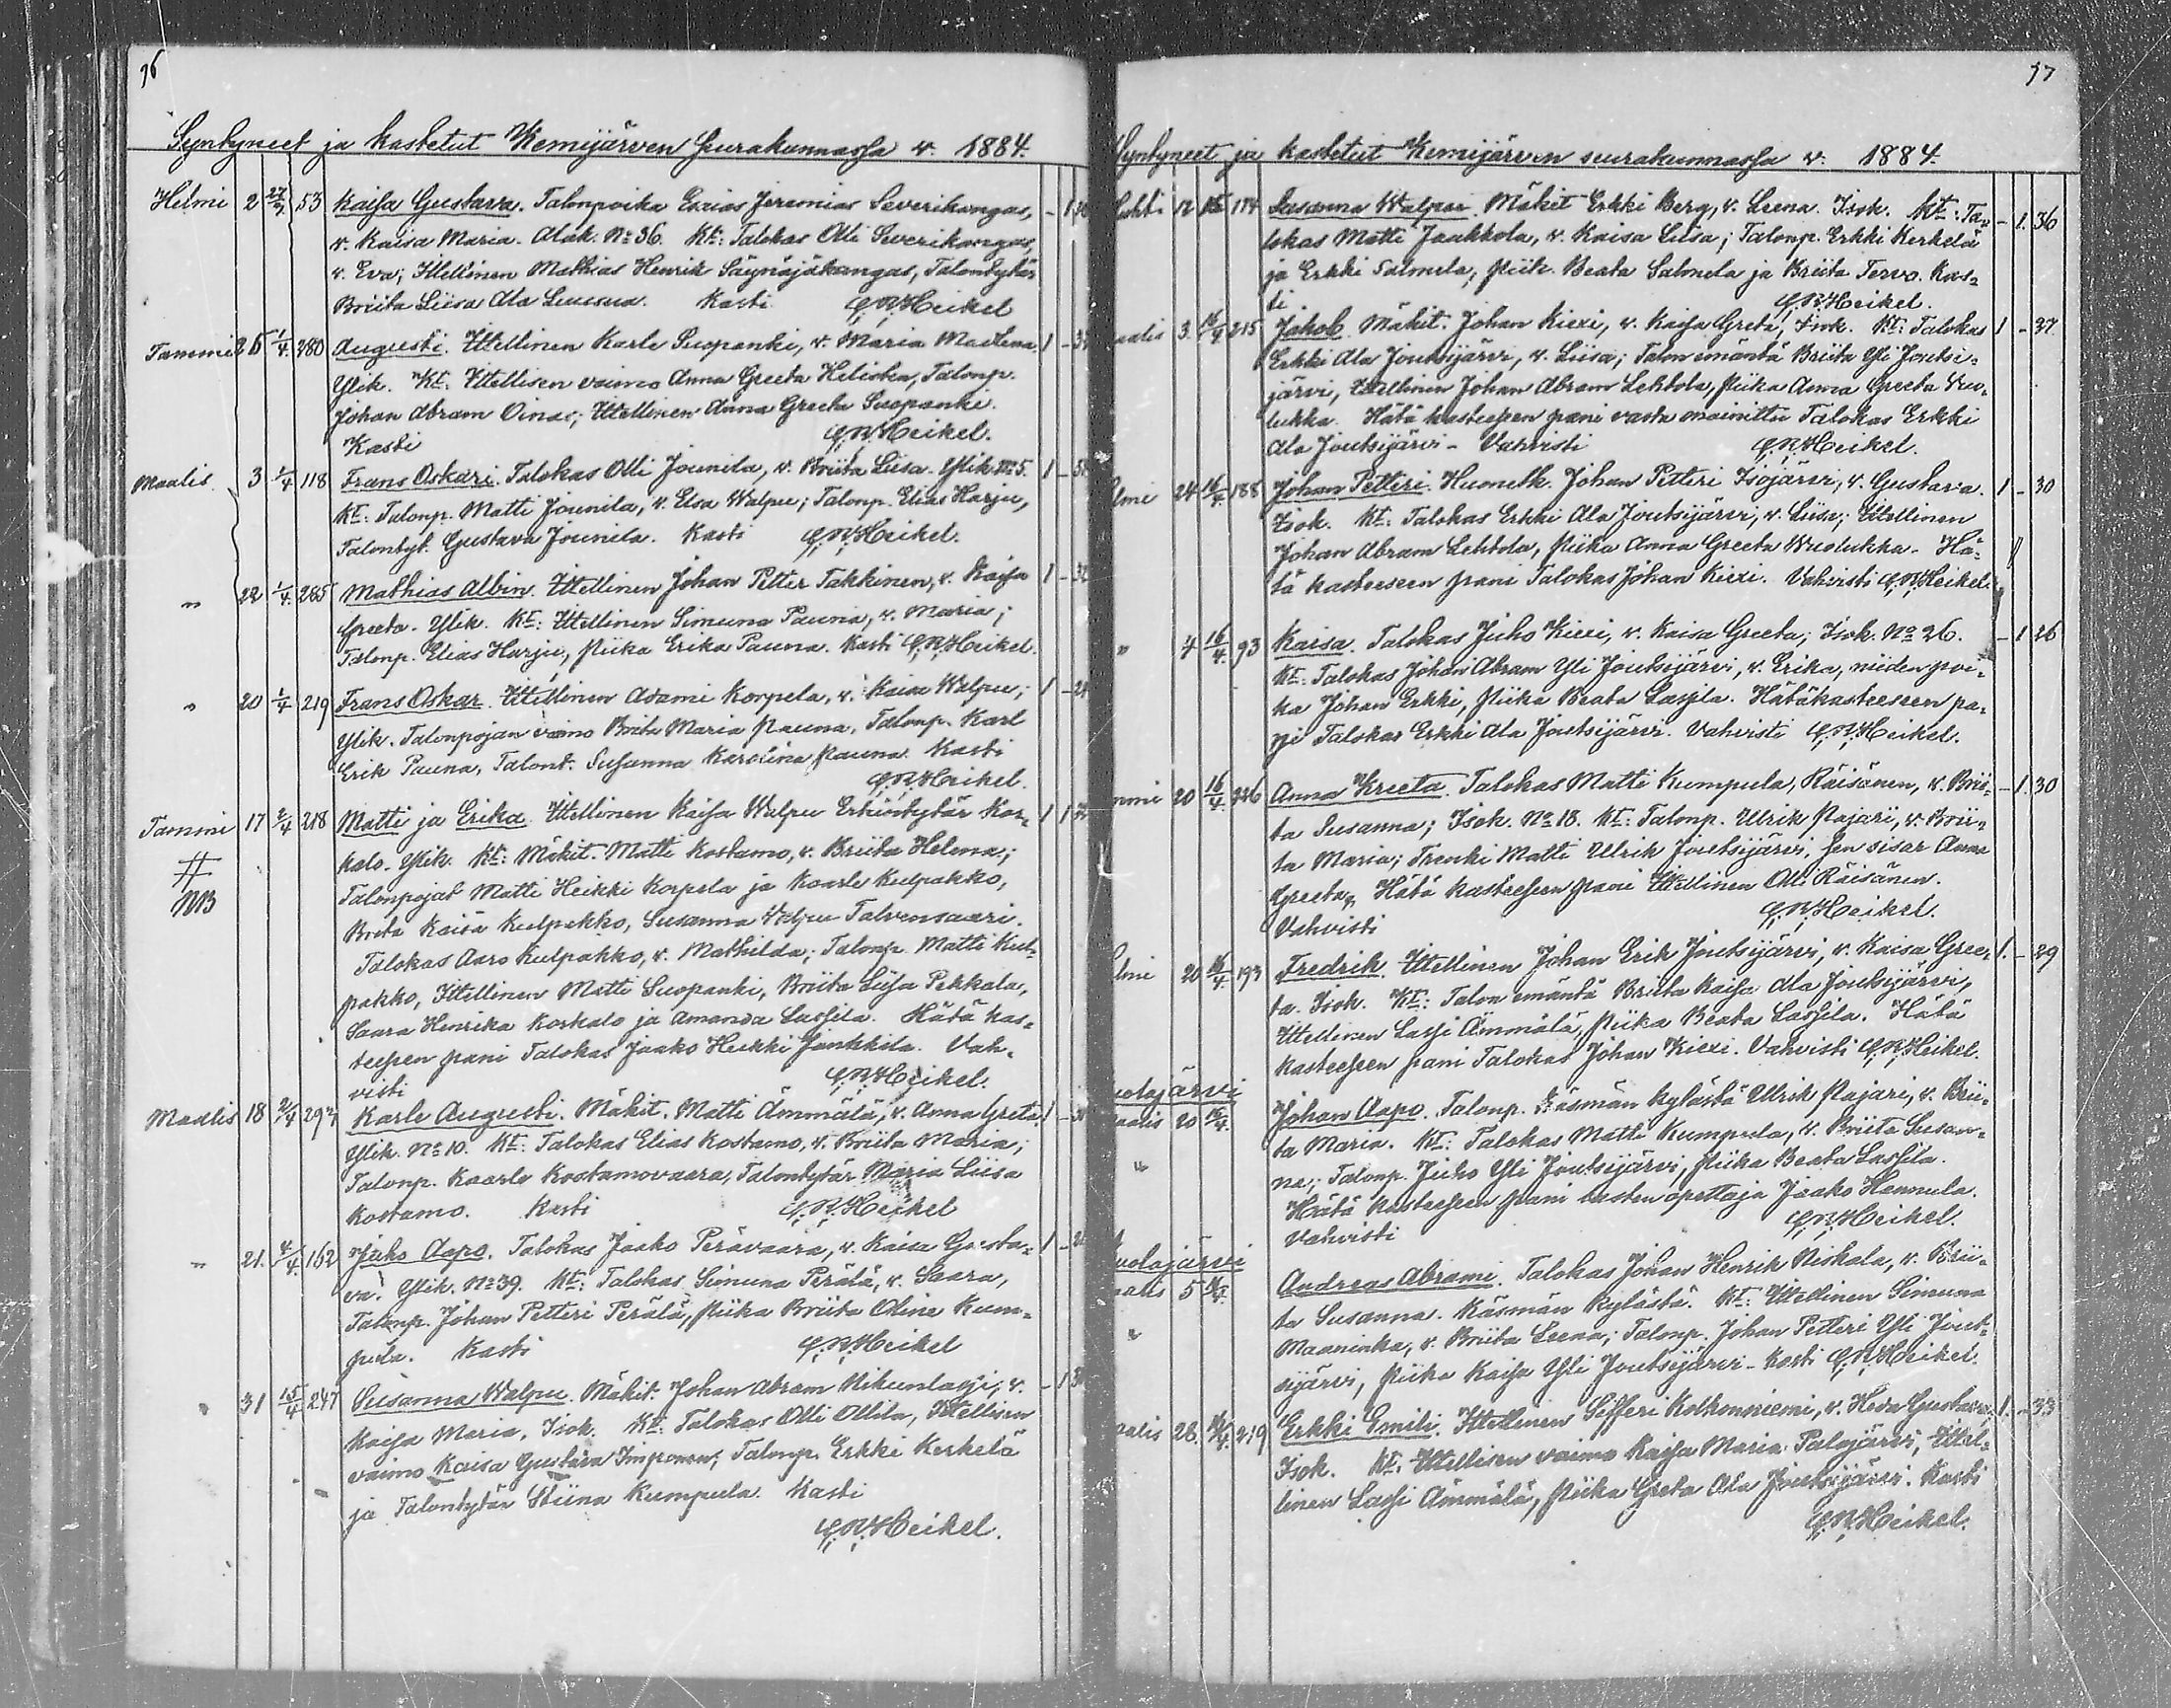 76
Syntyneet ja kastetut Kemijärven seurakunnassa v. 1884.
Helmi 2 27/3 53 Kaisa Gustava. Talonpoika Esaias Jeremias Severikangas, - 1
v. Kaisa Maria. Alak. No 36. Kt: Talokas Olli Severikangas,
v. Eva; Itellinen Mathias Henrik Säynäjäkangas, Talontytär
Briita Liisa Ala Luusua. Kasti C.R.Heikel
Tammi 26 1/4 280 Augusti. Itellinen Karle Suopanki, v. Maria Madlena. 1 -
Ylik. Kt: Itellisen vaimo Anna Greeta Heliska, Talonp.
Johan Abram Oinas; Itellinen Anna Greeta Suopanki.
Kasti C.R.Heikel.
Maalis 3 1/4 118 Frans Oskari. Talokas Olli Jounila, v. Briita Liisa. Ylik. No 5. 1 -
Kt: Talonp. Matti Jounila, v. Elsa Walpu; Talonp. Elias Harju,
Talontyt. Gustava Jounila. Kasti C.R.Heikel.
" 22 1/4 285 Mathias Albin. Itellinen Johan Petter Takkinen, v. Kaisa 1 - 32
Greeta. Ylik. Kt: Itellinen Simuna Pauna, v. Maria;
Talonp. Elias Harju, Piika Erika Pauna. Kasti C.R.Heikel.
" 20 1/4 219 Frans Oskar. Itellinen Adami Korpela, v. Kaisa Walpu; 1 -
Ylik. Talonpojan vaimo Brita Maria Pauna, Talonp. Karl
Erik Pauna, Talont. Susanna Karolina Pauna. Kasti
C.R.Heikel.
Tammi 17 2/4 218 Matti ja Erika. Itellinen Kaisa Walpu Erkintytär Kos- 1 1
# kalo. Ylik. Kt: Mäkit. Matti Kostamo, v. Briita Helena;
NB Talonpojat Matti Heikki Korpela ja Kaarle Kulpakko,
Breta Kaisa Kulpakko, Susanna Walpu Talvensaari.
Talokas Aaro Kulpakko, v. Mathilda; Talonp. Matti Kul-
pakko, Itellinen Matti Suopanki, Briita Liisa Pekkala,
Saara Henrika Koskalo ja Amanda Lassila. Hätä kas-
teesen pani Talokas Jaako Heikki Jankkila. Vah-
visti C.R.Heikel.
Maalis 18 2/4 297 Karle Augusti. Mäkit. Matti Ämmälä, v. Anna Greta; 1 -
Ylik. No 10. Kt: Talokas Elias Kostamo, v. Briita Maria;
Talonp. Kaarlo Kostamovaara, Talontytär Maria Liisa
Kostamo. Kasti C.R.Heikel
" 21. 4/4. 162 Juho Aapo. Talokas Jaako Perävaara, v. Kaisa Gusta- 1 -
va. Ylik. No 39. Kt: Talokas Simuna Perälä, v. Saara,
Talonp. Johan Petteri Perälä, Piika Briita Oline Kum-
pula. Kasti C.R.Heikel
" 31 15/4 247 Susanna Walpu. Mäkit. Johan Abram Nikunlassi, v. - 1
Kaisa Maria, Isok. Kt: Talokas Olli Ollila, Itellisen
vaimo Kaisa Gustava Imponen; Talonp. Erkki Kerkelä
ja Talontytär Stiina Kumpula. Kasti
C.R.Heikel.
77
Syntyneet ja kastetut Kemijärven seurakunnassa v. 1884.
12 174 Susanna Walpuri. Mäkit Erkki Berg, v. Leena. Isok. Kt: Ta- - 1. 36
lokas Matti Jaakkola, v. Kaisa Liisa; Talonp. Erkki Kerkelä
ja Erkki Salmela; Piik. Beata Salmela ja Briita Tervo. Kas-
ti C.R.Heikel.
aalis 3. 16/4 215 Jakob. Mäkit. Johan Kiexi, v. Kaisa Greta, Isok. Kt: Talokas 1 - 37
Erkki Ala Joutsijärvi, v. Liisa; Talon emäntä Briita Yli Joutsi-
järvi, Itellinen Johan Abram Lehtola, Piika Anna Greeta Vuo-
lukka. Hätä kasteesen pani vasta mainittu Talokas Erkki
Ala Joutsijärvi - Vahvisti C.R.Heikel.
elmi 24 16/4 188 Johan Petteri. Huonetk. Johan Petteri Isojärvi, v. Gustava. 1 - 30
Isok. Kt: Talokas Erkki Ala Joutsijärvi, v. Liisa; Itellinen
Johan Abram Lehtola, Piika Anna Greeta Wuolukka. Hä-
tä kasteeseen pani Talokas Johan Kiexi. Vahvisti C.R.Heikel.
" 4 16/4. 93 Kaisa. Talokas Juho Kiexi, v. Kaisa Greeta; Isok. No 26. - 1 26
Kt: Talokas Johan Abram Yli Joutsijärvi, v. Erika, niiden poi-
ka Johan Erkki, Piika Beata Lassila. Hätäkasteeseen pa-
ni Talokas Erkki Ala Joutsijärvi. Vahvisti C.R.Heikel.
mmi 20 16/4. 226 Anna Kreeta. Talokas Matti Kumpula, Räisänen, v. Brii- - 1. 30
ta Susanna; Isok. No 18. Kt: Talonp. Ulrik Pajari, v. Brii-
ta Maria; Trenki Matti Ulrik Joutsijärvi, sen sisar Anna
Greeta. Hätä kasteesen pani Itellinen Olli Räisänen.
Vahvisti C.R.Heikel.
elmi 20 16/4. 193 Fredrik. Itellinen Johan Erik Joutsijärvi, v. Kaisa Gree- 1. - 29
ta. Isok. Kt: Talon emäntä Briita Kaisa Ala Joutsijärvi,
Itellinen Lassi Ämmälä, Piika Beata Lassila. Hätä
kasteesen pani Talokas Johan Kiexi. Vahvisti C.R.Heikel.
uolajärvi
aalis 20 16/4. Johan Aapo. Talonp. Käsmän kylästä Ulrik Pajari, v. Brii-
ta Maria. Kt: Talokas Matti Kumpula, v. Briita Susan-
" na; Talonp. Juho Yli Joutsijärvi, Piika Beata Lassila.
Hätä kasteesen pani lasten opettaja Jaako Hannula.
Vahvisti C.R.Heikel.
uolajärvi
aalis 5 Andreas Abrami. Talokas Johan Henrik Niskala, v. Brii-
ta Susanna. Käsmän kylästä. Kt: Itellinen Simuna
" Maaninka, v. Briita Leena; Talonp. Johan Petteri Yli Jout-
sijärvi, Piika Kaisa Yli Joutsijärvi - Kasti C.R.Heikel.
aalis 28. 219 Erkki Emili. Itellinen Sifferi Kolkonniemi, v. Heda Gustava; 1. - 33
Isok. Kt: Itellisen vaimo Kaisa Maria Palojärvi, Itel-
linen Lassi Ämmälä, Piika Greta Ala Joutsijärvi. Kasti
C.R.Heikel.